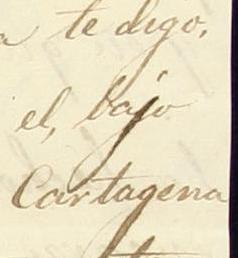 a te digo,
el, bajo
Cartagena